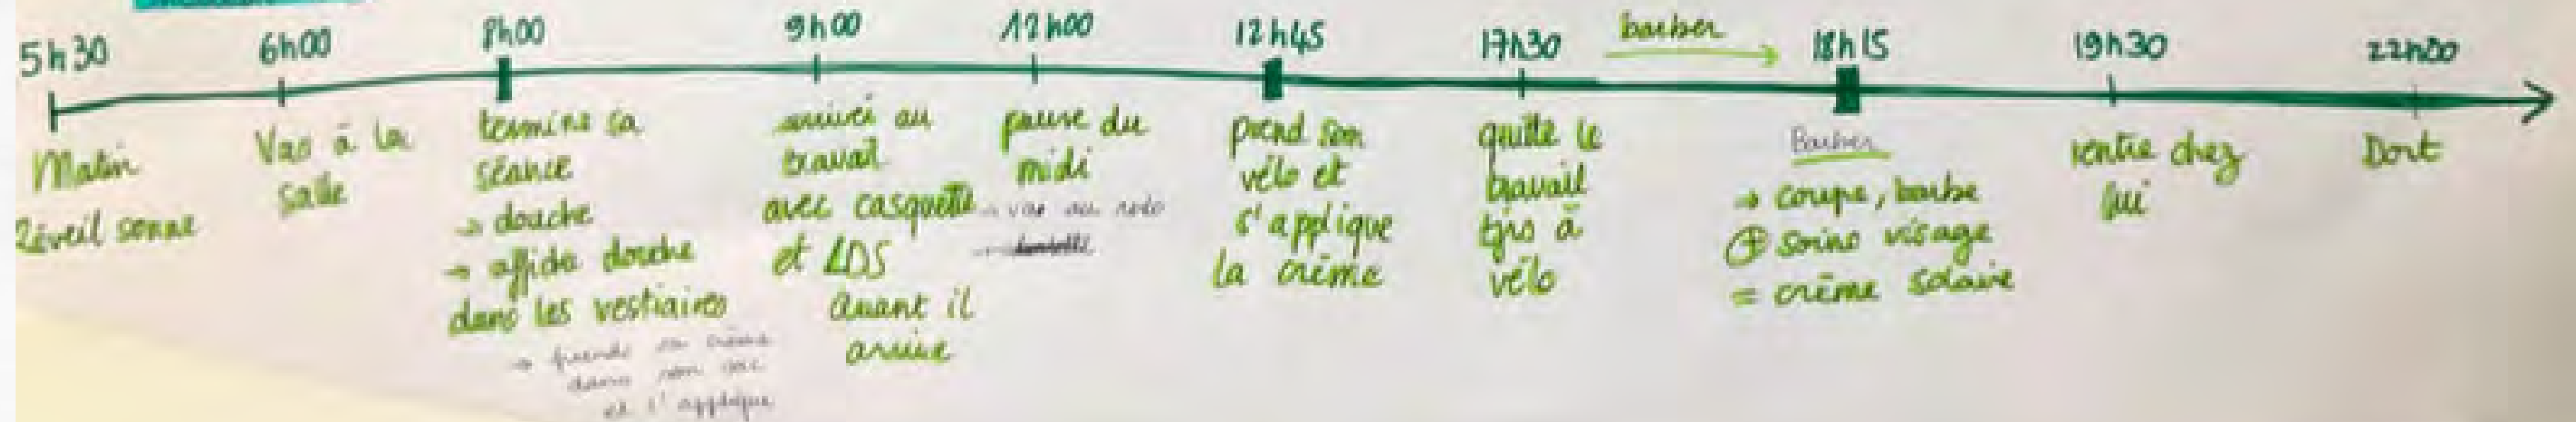 5h30
Matin
Réveil sonne
6h00
Vas à la
salle
8h00
termine sa
séance
→ douche
→ affiche douche
dans les vestiaires
→ prends sa crème
dans son sac
et l'applique
9h00
arrivé au
travail
avec casquette
et LDS
avant il
arrive
12h00
pause du
midi
→ vas au
12h45
prend son
vélo et
s'applique
la crème
17h30
quitte le
travail
tjrs à
vélo
barber
18h15
Barber
→ coupe, barbe
+ soins visage
= crème solaire
19h30
rentre chez
lui
22h00
Dort